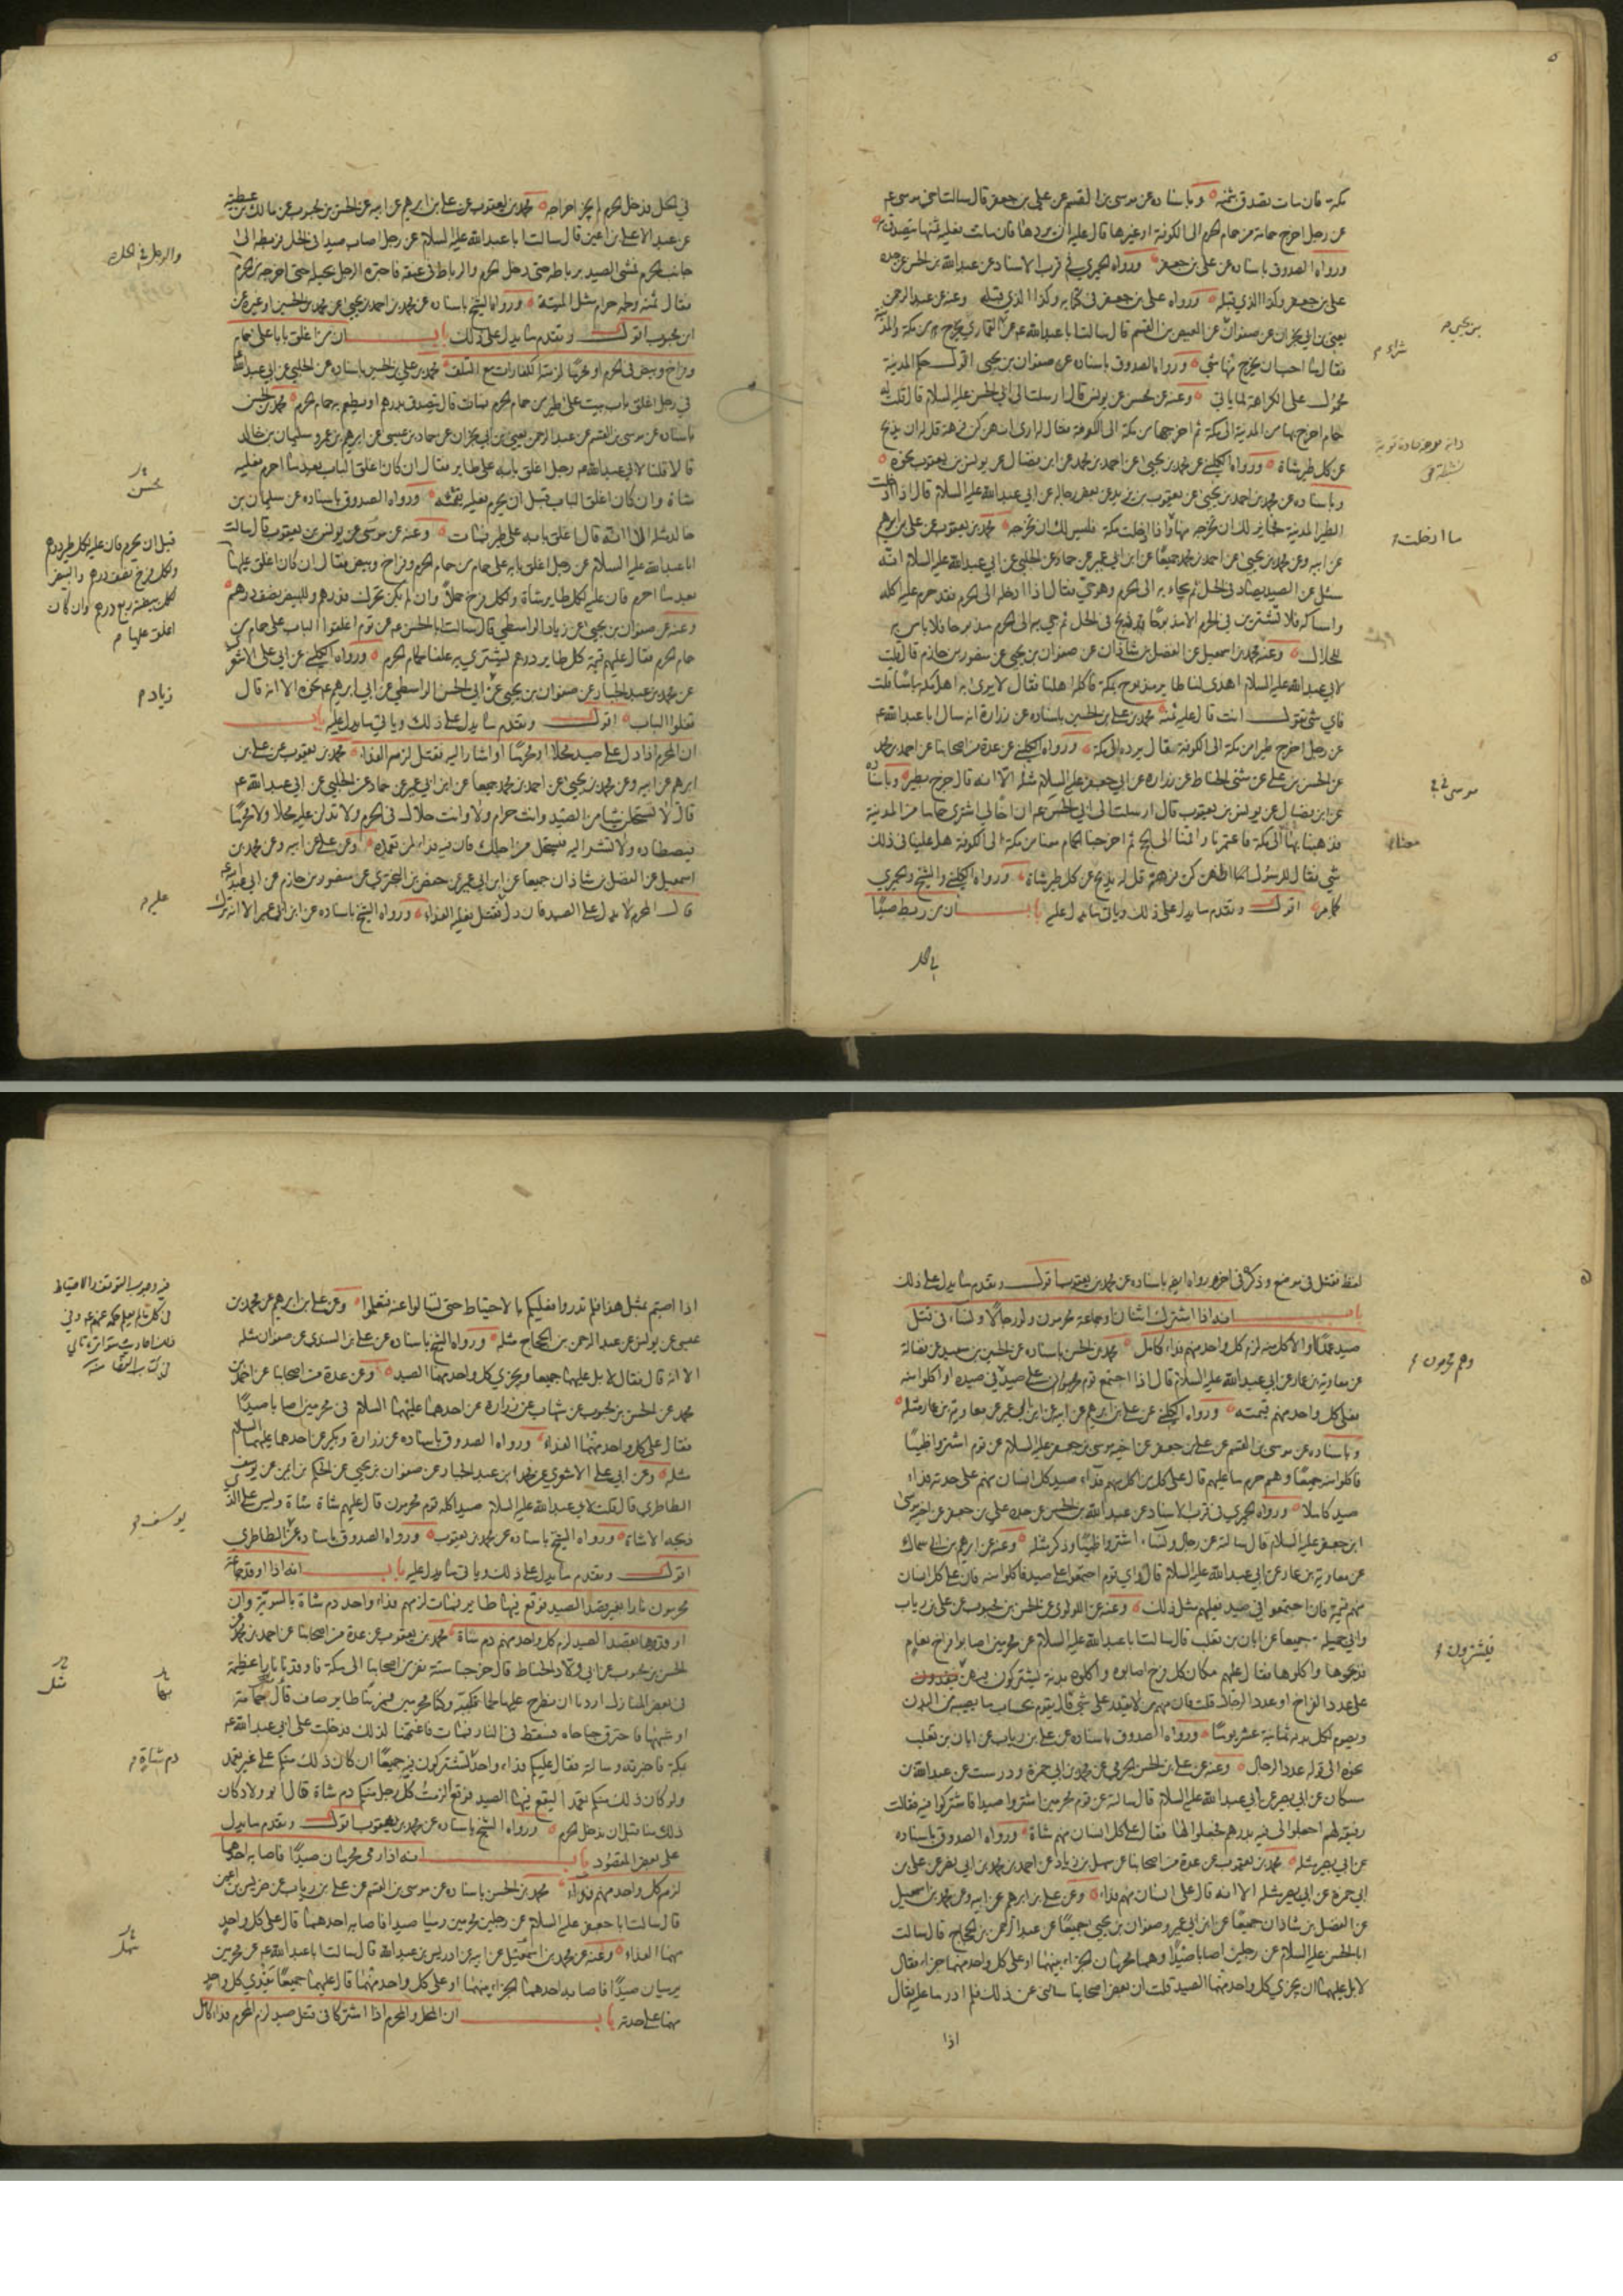 مكة فان مات تصدق بثمنه وباسناده عن موسى بن القسم عن علي بن جعفر قال سالت اخي موسى ع
عن رجل اخرج حمامة من حمام الحرم الى الكوفة او غيرها قال عليه ان يردها فان ماتت فعليه ثمنها يتصدق به
ورواه الصدوق باسناده عن علي بن جعفر ورواه الحميري في قرب الاسناد عن عبدالله بن الحسن عن جده
علي بن جعفر وكذا الذي قبله ورواه علي بن جعفر في كتابه وكذا الذي قبله وعنه عن عبدالرحمن
يعني ابن ابي نجران عن صفوان عن العيص بن القسم قال سالت ابا عبدالله ع عن القماري يخرج من مكة والمدينة
بن يحيى م
شراء م
فقال ما احب ان يخرج منها شي ورواه الصدوق باسناده عن صفوان بن يحيى اقول حكم المدينة
محمول على الكراهة لما ياتي وعنه عن محسن عن يونس قال ارسلت الى ابي الحسن عليه السلام قال قلت له
حمام اخرج بها من المدينة الى مكة ثم اخرجها من مكة الى الكوفة فقال له ارى انهن كن فرهة قل له ان يذبح
عن كل طير شاة ورواه الكليني عن محمد بن يحيى عن احمد بن محمد عن ابن فضال عن يونس بن يعقوب نحوه
وباسناده عن محمد بن احمد بن يحيى عن يعقوب بن يزيد عن بعض رجاله عن ابي عبدالله عليه السلام قال اذا ادخلت
الطير المدينة فجايز لك ان تخرجه منها واذا ادخلت مكة فليس لك ان تخرجه محمد بن يعقوب عن علي بن ابرهيم
ما ادخلت م
عن ابيه وعن محمد بن يحيى عن احمد بن محمد جميعا عن ابن ابي عمير عن حماد عن الحلبي عن ابي عبدالله عليه السلام انه
سئل عن الصيد يصاد في الحل ثم يجاء به الى الحرم وهو حي فقال اذا ادخله الى الحرم فقد حرم عليه اكله
وامساكه فلا تشترين في الحرم الا مذبوحا قد ذبح في الحل ثم جي به الى الحرم مذبوحا فلا باس به
للحلال وعنه محمد بن اسمعيل عن الفضل بن شاذان عن صفوان بن يحيى عن منصور بن حازم قال قلت
لابي عبدالله عليه السلام اهدى لنا طاير مذبوح بمكة فاكله اهلنا فقال لا يرى به اهل مكة باسا قلت
فاي شي تقول انت قال عليهم ثمنه محمد بن علي بن الحسين باسناده عن زرارة انه سال ابا عبدالله ع
عن رجل اخرج طيرا من مكة الى الكوفة فقال يرده الى مكة ورواه الكليني عن عدة من اصحابنا عن احمد بن محمد
عن الحسن بن علي عن مثنى الحناط عن زرارة عن ابي جعفر عليه السلام مثله الا انه قال خرج بطير وباسناده
عن ابن فضال عن يونس بن يعقوب قال ارسلت الى ابي الحسن ع ان اخا لي اشترى حماما من المدينة
فذهبنا بها الى مكة فاعتمرنا واقمنا الى الحج ثم اخرجنا الحمام معنا من مكة الى الكوفة هل علينا في ذلك
شي فقال للرسول اظنهن كن فرهة قل له يذبح عن كل طير شاة ورواه الكليني والشيخ والحميري
كما مر اقول وتقدم ما يدل على ذلك وياتي ما يدل عليه باب ان من ربط صيدا
في الحل فدخل الحرم لم يجز اخراجه محمد بن يعقوب عن علي بن ابرهيم عن ابيه عن الحسن بن محبوب عن مالك بن عطية
عن عبد الاعلى بن اعين قال سالت ابا عبدالله عليه السلام عن رجل اصاب صيدا في الحل فربطه الى
والرجل في الحل م
جانب الحرم فمشى الصيد برباطه حتى دخل الحرم والرباط في عنقه فاجتره الرجل بحبله حتى اخرجه من الحرم
فقال ثمنه ولحمه حرام مثل الميتة ورواه الشيخ باسناده عن محمد بن احمد بن يحيى عن محمد بن الحسين او غيره عن
ابن محبوب اقول وتقدم ما يدل على ذلك باب ان من اغلق بابا على حمام
وفراخ وبيض في الحرم او محرما لزمته الكفارات مع التلف محمد بن علي بن الحسين باسناده عن الحلبي عن ابي عبدالله
في رجل اغلق باب بيت على طير من حمام الحرم فمات قال يتصدق بدرهم او يطعم به حمام الحرم محمد بن الحسن
باسناده عن موسى بن القسم عن عبدالرحمن يعني ابن ابي نجران عن حماد بن عيسى عن ابرهيم بن عمر وسليمان بن خالد
قالا قلنا لابي عبدالله ع رجل اغلق بابه على طاير فقال ان كان اغلق الباب بعد ما احرم فعليه
شاة وان كان اغلق الباب قبل ان يحرم فعليه ثمنه ورواه الصدوق باسناده عن سليمان بن
محسن
خالد مثله الا انه قال اغلق بابه على طير فمات وعنه عن موسى عن يونس بن يعقوب قال سالت
قبل ان يحرم فان عليه لكل طير درهم
ولكل فرخ نصف درهم والبيض
لكل بيضة ربع درهم وان كان
اغلق عليها م
ابا عبدالله عليه السلام عن رجل اغلق بابه على حمام من حمام الحرم وفراخ وبيض فقال ان كان اغلق عليها
بعد ما احرم فان عليه لكل طاير شاة ولكل فرخ حملا وان لم يكن تحرك فدرهم وللبيض نصف درهم
وعنه عن صفوان بن يحيى عن زياد الواسطي قال سالت ابا الحسن ع عن قوم اغلقوا الباب على حمام من
حمام الحرم فقال عليهم قيمة كل طاير درهم يشترى به علفا لحمام الحرم ورواه الكليني عن ابي علي الاشعري
عن محمد بن عبد الجبار عن صفوان بن يحيى عن ابي الحسن الواسطي عن ابي ابرهيم ع نحوه الا انه قال
زياد م
قفلوا الباب اقول وتقدم ما يدل على ذلك وياتي ما يدل عليه باب
ان المحرم اذا دل على صيد محلا او محرما او اشار اليه فقتل لزمه الفداء محمد بن يعقوب عن علي بن
ابرهيم عن ابيه وعن محمد بن يحيى عن احمد بن محمد جميعا عن ابن ابي عمير عن حماد عن الحلبي عن ابي عبدالله ع
قال لا تستحلن شيئا من الصيد وانت حرام ولا وانت حلال في الحرم ولا تدلن عليه محلا ولا محرما
فيصطاده ولا تشر اليه فيستحل من اجلك فان فيه فداء لمن تعمده وعن علي عن ابيه وعن محمد بن
اسمعيل عن الفضل بن شاذان جميعا عن ابن ابي عمير عن حفص بن البختري عن منصور بن حازم عن ابي عبدالله ع
قال المحرم لا يدل على الصيد فان دل فقتل فعليه الفداء ورواه الشيخ باسناده عن ابن ابي عمير الا انه ترك
عليه م
لفظ فقتل في موضع وذكره في اخر ورواه ايضا باسناده عن محمد بن يعقوب اقول وتقدم ما يدل على ذلك
باب انه اذا اشترك اثنان او جماعة محرمون ولو رجالا ونساء في قتل
صيد عمدا او الاكل منه لزم كل واحد منهم فداء كامل محمد بن الحسن باسناده عن الحسين بن سعيد عن فضالة
وهم محرمون م
عن معاوية بن عمار عن ابي عبدالله عليه السلام قال اذا اجتمع قوم محرمون على صيد في صيده او اكلوا منه
فعلى كل واحد منهم قيمته ورواه الكليني عن علي بن ابرهيم عن ابيه عن ابن ابي عمير عن معاوية بن عمار مثله
وباسناده عن موسى بن القسم عن علي بن جعفر عن اخيه موسى بن جعفر عليه السلام عن قوم اشتروا ظبيا
فاكلوا منه جميعا وهم حرم ما عليهم قال على كل من اكل منهم فداء صيد كل انسان منهم على حدته فداء
صيد كاملا ورواه الحميري في قرب الاسناد عن عبدالله بن الحسن عن جده علي بن جعفر عن اخيه موسى
ابن جعفر عليه السلام قال سالته عن رجال ونساء اشتروا ظبيا وذكر مثله وعنه عن ابرهيم بن ابي سماك
عن معاوية بن عمار عن ابي عبدالله عليه السلام قال واي قوم اجتمعوا على صيد فاكلوا منه فان على كل انسان
منهم قيمة فان اجتمعوا في صيد فعليهم مثل ذلك وعنه عن اللولوي عن الحسن بن محبوب عن علي بن رياب
وابي جميلة جميعا عن ابان بن تغلب قال سالت ابا عبدالله عليه السلام عن محرمين اصابوا فراخ نعام
فيشترون م
فذبحوها واكلوها فقال عليهم مكان كل فرخ اصابوه واكلوه بدنة يشتركون فيهن
على عدد الفراخ او عدد الرجال قلت فان منهم من لا يقدر على شي قال يقوم بحساب ما يصيبه من البدن
ويصوم لكل بدنة ثمانية عشر يوما ورواه الصدوق باسناده عن علي بن رياب عن ابان بن تغلب
نحوه الى قوله عدد الرجال وعنه عن علي بن الحسن الجرمي عن محمد بن ابي حمزة ودرست عن عبدالله بن
مسكان عن ابي بصير عن ابي عبدالله عليه السلام قال سالته عن قوم محرمين اشتروا صيدا فاشتركوا فيه فقالت
رفيقة لهم اجعلوا لي فيه بدرهم فجعلوا لها فقال على كل انسان منهم شاة ورواه الصدوق باسناده
عن ابي بصير مثله محمد بن يعقوب عن عدة من اصحابنا عن سهل بن زياد عن احمد بن محمد بن ابي نصر عن علي بن
ابي حمزة عن ابي بصير مثله الا انه قال على كل انسان منهم فداء وعن علي بن ابرهيم عن ابيه وعن محمد بن اسمعيل
عن الفضل بن شاذان جميعا عن ابن ابي عمير وصفوان بن يحيى جميعا عن عبد الرحمن بن الحجاج قال سالت
ابا الحسن عليه السلام عن رجلين اصابا صيدا وهما محرمان الجزاء بينهما او على كل واحد منهما جزاء فقال
لا بل عليهما ان يجزي كل واحد منهما الصيد قلت ان بعض اصحابنا سالني عن ذلك فلم ادر ما عليه فقال
اذا
اذا اصبتم بمثل هذا فلم تدروا فعليكم بالاحتياط حتى تسالوا عنه فتعلموا وعن علي بن ابرهيم عن محمد بن
عيسى عن يونس عن عبد الرحمن بن الحجاج مثله ورواه الشيخ باسناده عن علي بن السندي عن صفوان مثله
الا انه قال فقال لا بل عليهما جميعا ويجزي كل واحد منهما الصيد وعن عدة من اصحابنا عن احمد بن
محمد عن الحسن بن محبوب عن شهاب عن زرارة عن احدهما عليهما السلام في محرمين اصابا صيدا
فقال على كل واحد منهما الفداء ورواه الصدوق باسناده عن زرارة وبكير عن احدهما عليهما السلام
مثله وعن ابي علي الاشعري عن محمد بن عبد الجبار عن صفوان بن يحيى عن الحكم بن ايمن عن يوسف
الطاطري قال قلت لابي عبدالله عليه السلام صيد اكله قوم محرمون قال عليهم شاة شاة وليس على الذي
يوسف م
ذبحه الا شاة ورواه الشيخ باسناده عن محمد بن يعقوب ورواه الصدوق باسناده عن الطاطري
اقول وتقدم ما يدل على ذلك وياتي ما يدل عليه باب انه اذا اوقد جماعة
محرمون نارا بغير قصد الصيد فوقع فيها طاير فمات لزمهم فداء واحد دم شاة بالسوية وان
اوقدوها بقصد الصيد لزم كل واحد منهم دم شاة محمد بن يعقوب عن عدة من اصحابنا عن احمد بن محمد عن
الحسن بن محبوب عن ابي ولاد الحناط قال خرجنا ستة نفر من اصحابنا الى مكة فاوقدنا نارا عظيمة
في بعض المنازل اردنا ان نطرح عليها لحما نكببه وكنا محرمين فمر بنا طاير صاف قال حمامة
او شبهها فاحترق جناحاه فسقط في النار فمات فاغتممنا لذلك فدخلت على ابي عبدالله ع
بمكة فاخبرته وسالته فقال عليكم فداء واحد تشتركون فيه جميعا ان كان ذلك منكم على غير تعمد
دم شاة م
ولو كان ذلك منكم تعمدا ليقع فيها الصيد فوقع الزمت كل رجل منكم دم شاة قال ابو ولاد كان
ذلك منا قبل ان ندخل الحرم ورواه الشيخ باسناده عن محمد بن يعقوب اقول وتقدم ما يدل
على بعض المقصود باب انه اذا رمى محرمان صيدا فاصابه احدهما
لزم كل واحد منهم فداء محمد بن الحسن باسناده عن موسى بن القسم عن علي بن رياب عن ضريس بن اعين
قال سالت ابا جعفر عليه السلام عن رجلين محرمين رميا صيدا فاصابه احدهما قال على كل واحد
منهما الفداء وعنه عن محمد بن اسمعيل عن ابيه عن ادريس بن عبدالله قال سالت ابا عبدالله ع عن محرمين
يرميان صيدا فاصابه احدهما الجزاء بينهما او على كل واحد منهما قال عليهما جميعا يفدي كل واحد
منهما على حدته باب ان المحل والمحرم اذا اشتركا في قتل صيد لزم المحرم فداء كامل